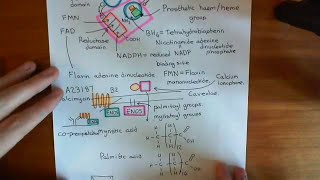 domain
FMN
FAD
Reductase
domain
NH₂
COOH
Prosthetic haem/heme
group
BH₄ = Tetrahydrobiopterin
Nicotinamide adenine
dinucleotide
phosphate
NADPH = reduced NADP
binding site
Flavin adenine dinucleotide
FMN = Flavin
mononucleotide
Calcium
ionophore
A23187
B2
calcimycin
Caveolus
ENOS
ENOS
palmitoyl groups
myristoyl groups
co-precipitated
Myristic acid
Palmitic acid
H
C
OH
12